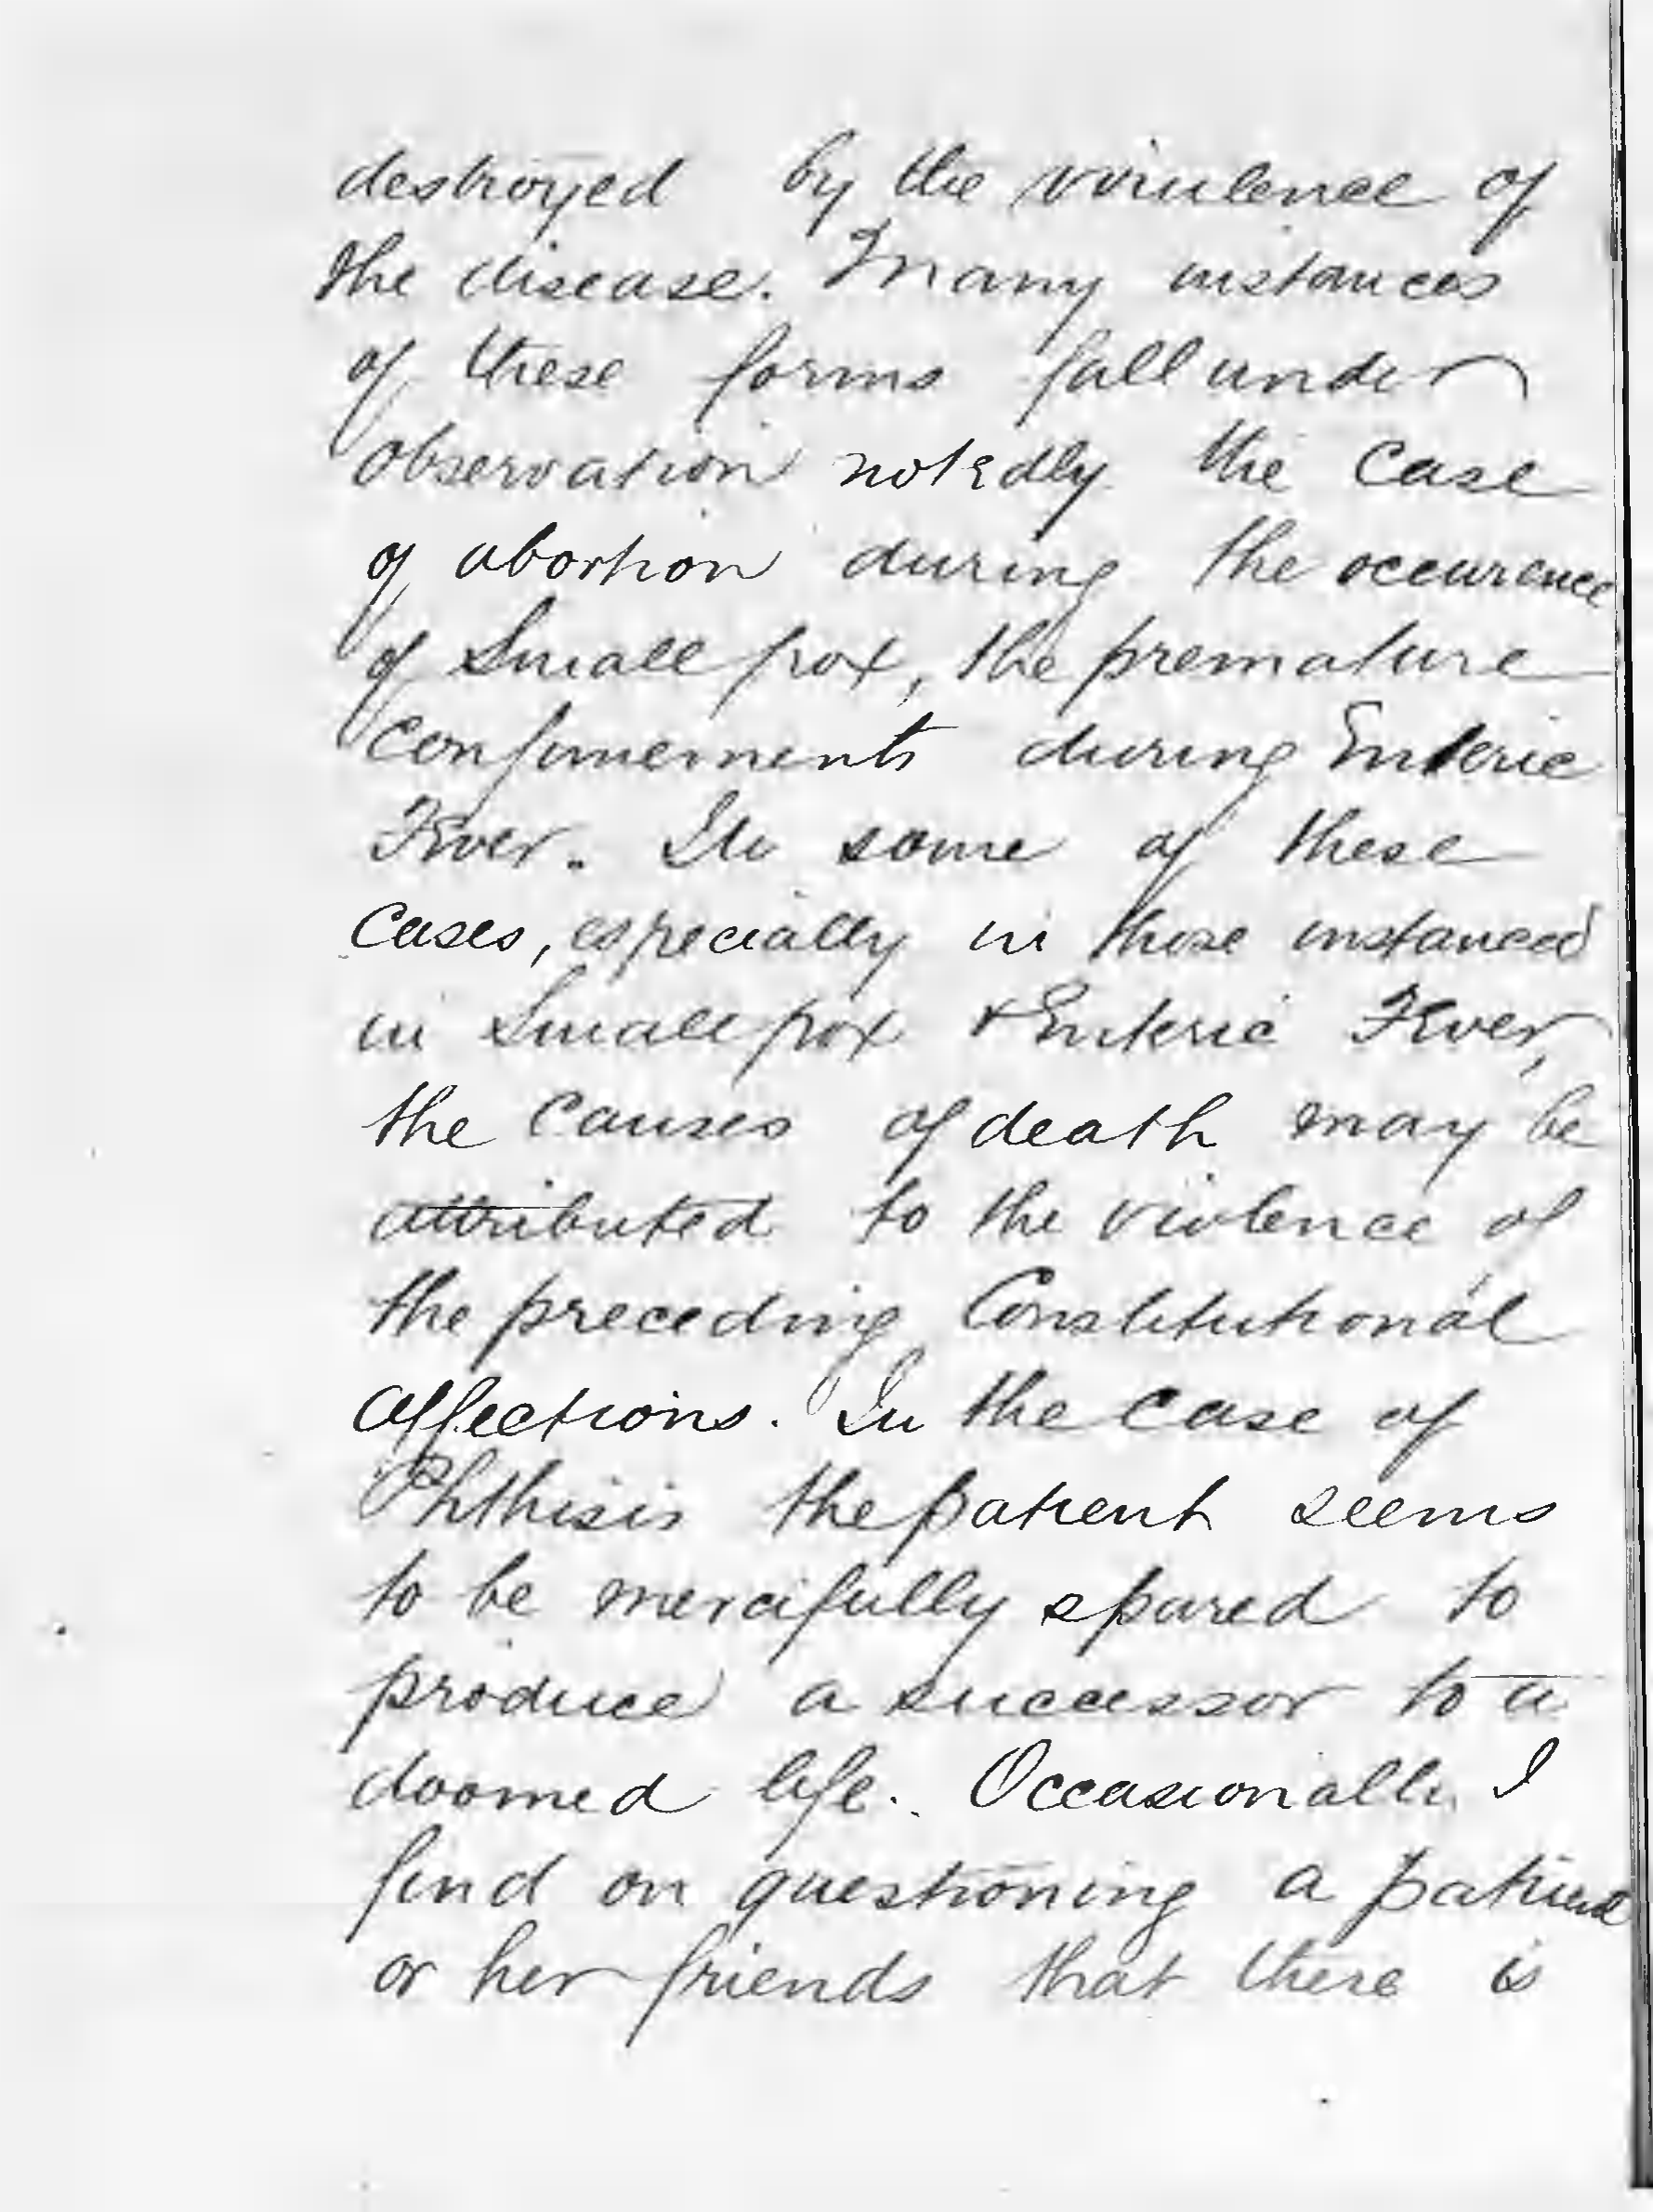 destroyed by the virulence of
the disease. Many instances
of these forms fall under
observation notedly the case
of abortion during the occurence
of Small pox, the premature
confinements during Enteric
Fever. In some of these
Cases, especially in those instanced
in Smallpox & Enteric Fever,
the causes of death may be
attributed to the violence of
the preceding Constitutional
affections. In the case of
Phthisis the patient seems
to be mercifully spared to
produce a successor to a
doomed life. Occasionally I
find on questioning a patient
or her friends that there is